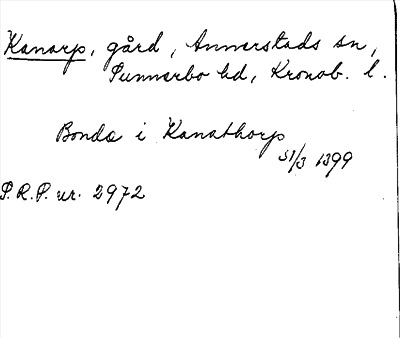 Kanarp, gård, Annerstads sn,
Sunnerbo hd, Kronob. l.
Bonde i Kanathorp
31/3 1399
S.R.P. nr. 2972